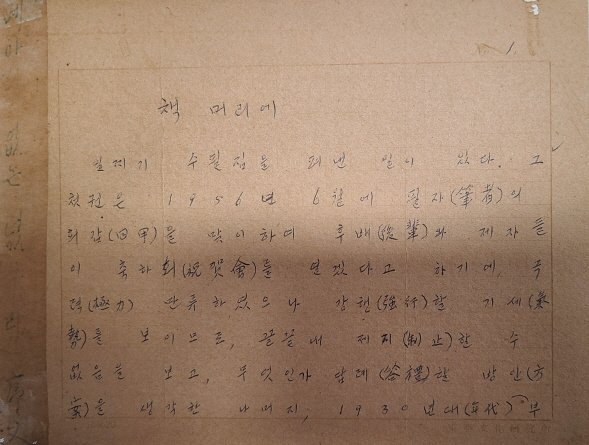 1
책 머리에
일찌기 수필집을 펴낸 일이 있다. 그
첫권은 1956년 6월에 필자(筆者)의
회갑(回甲)을 맞이하여 후배(後輩)와 제자들
이 축하회(祝賀會)를 열겠다고 하기에, 극
력(極力) 만류하였으나 강행(強行)할 기세(氣
勢)를 보이므로, 끝끝내 제지(制止)할 수
없음을 보고, 무엇인가 답례(答禮)할 방안(方
案)을 생각한 나머지, 1930년대(年代) 부